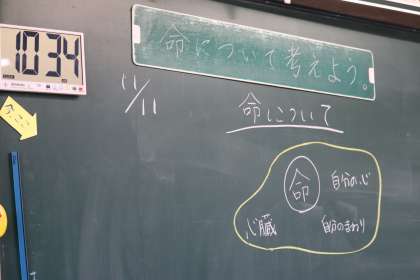 10:34
命について考えよう。
11/11
命について
今ここ
命
自分の心
心臓
自分のまわり